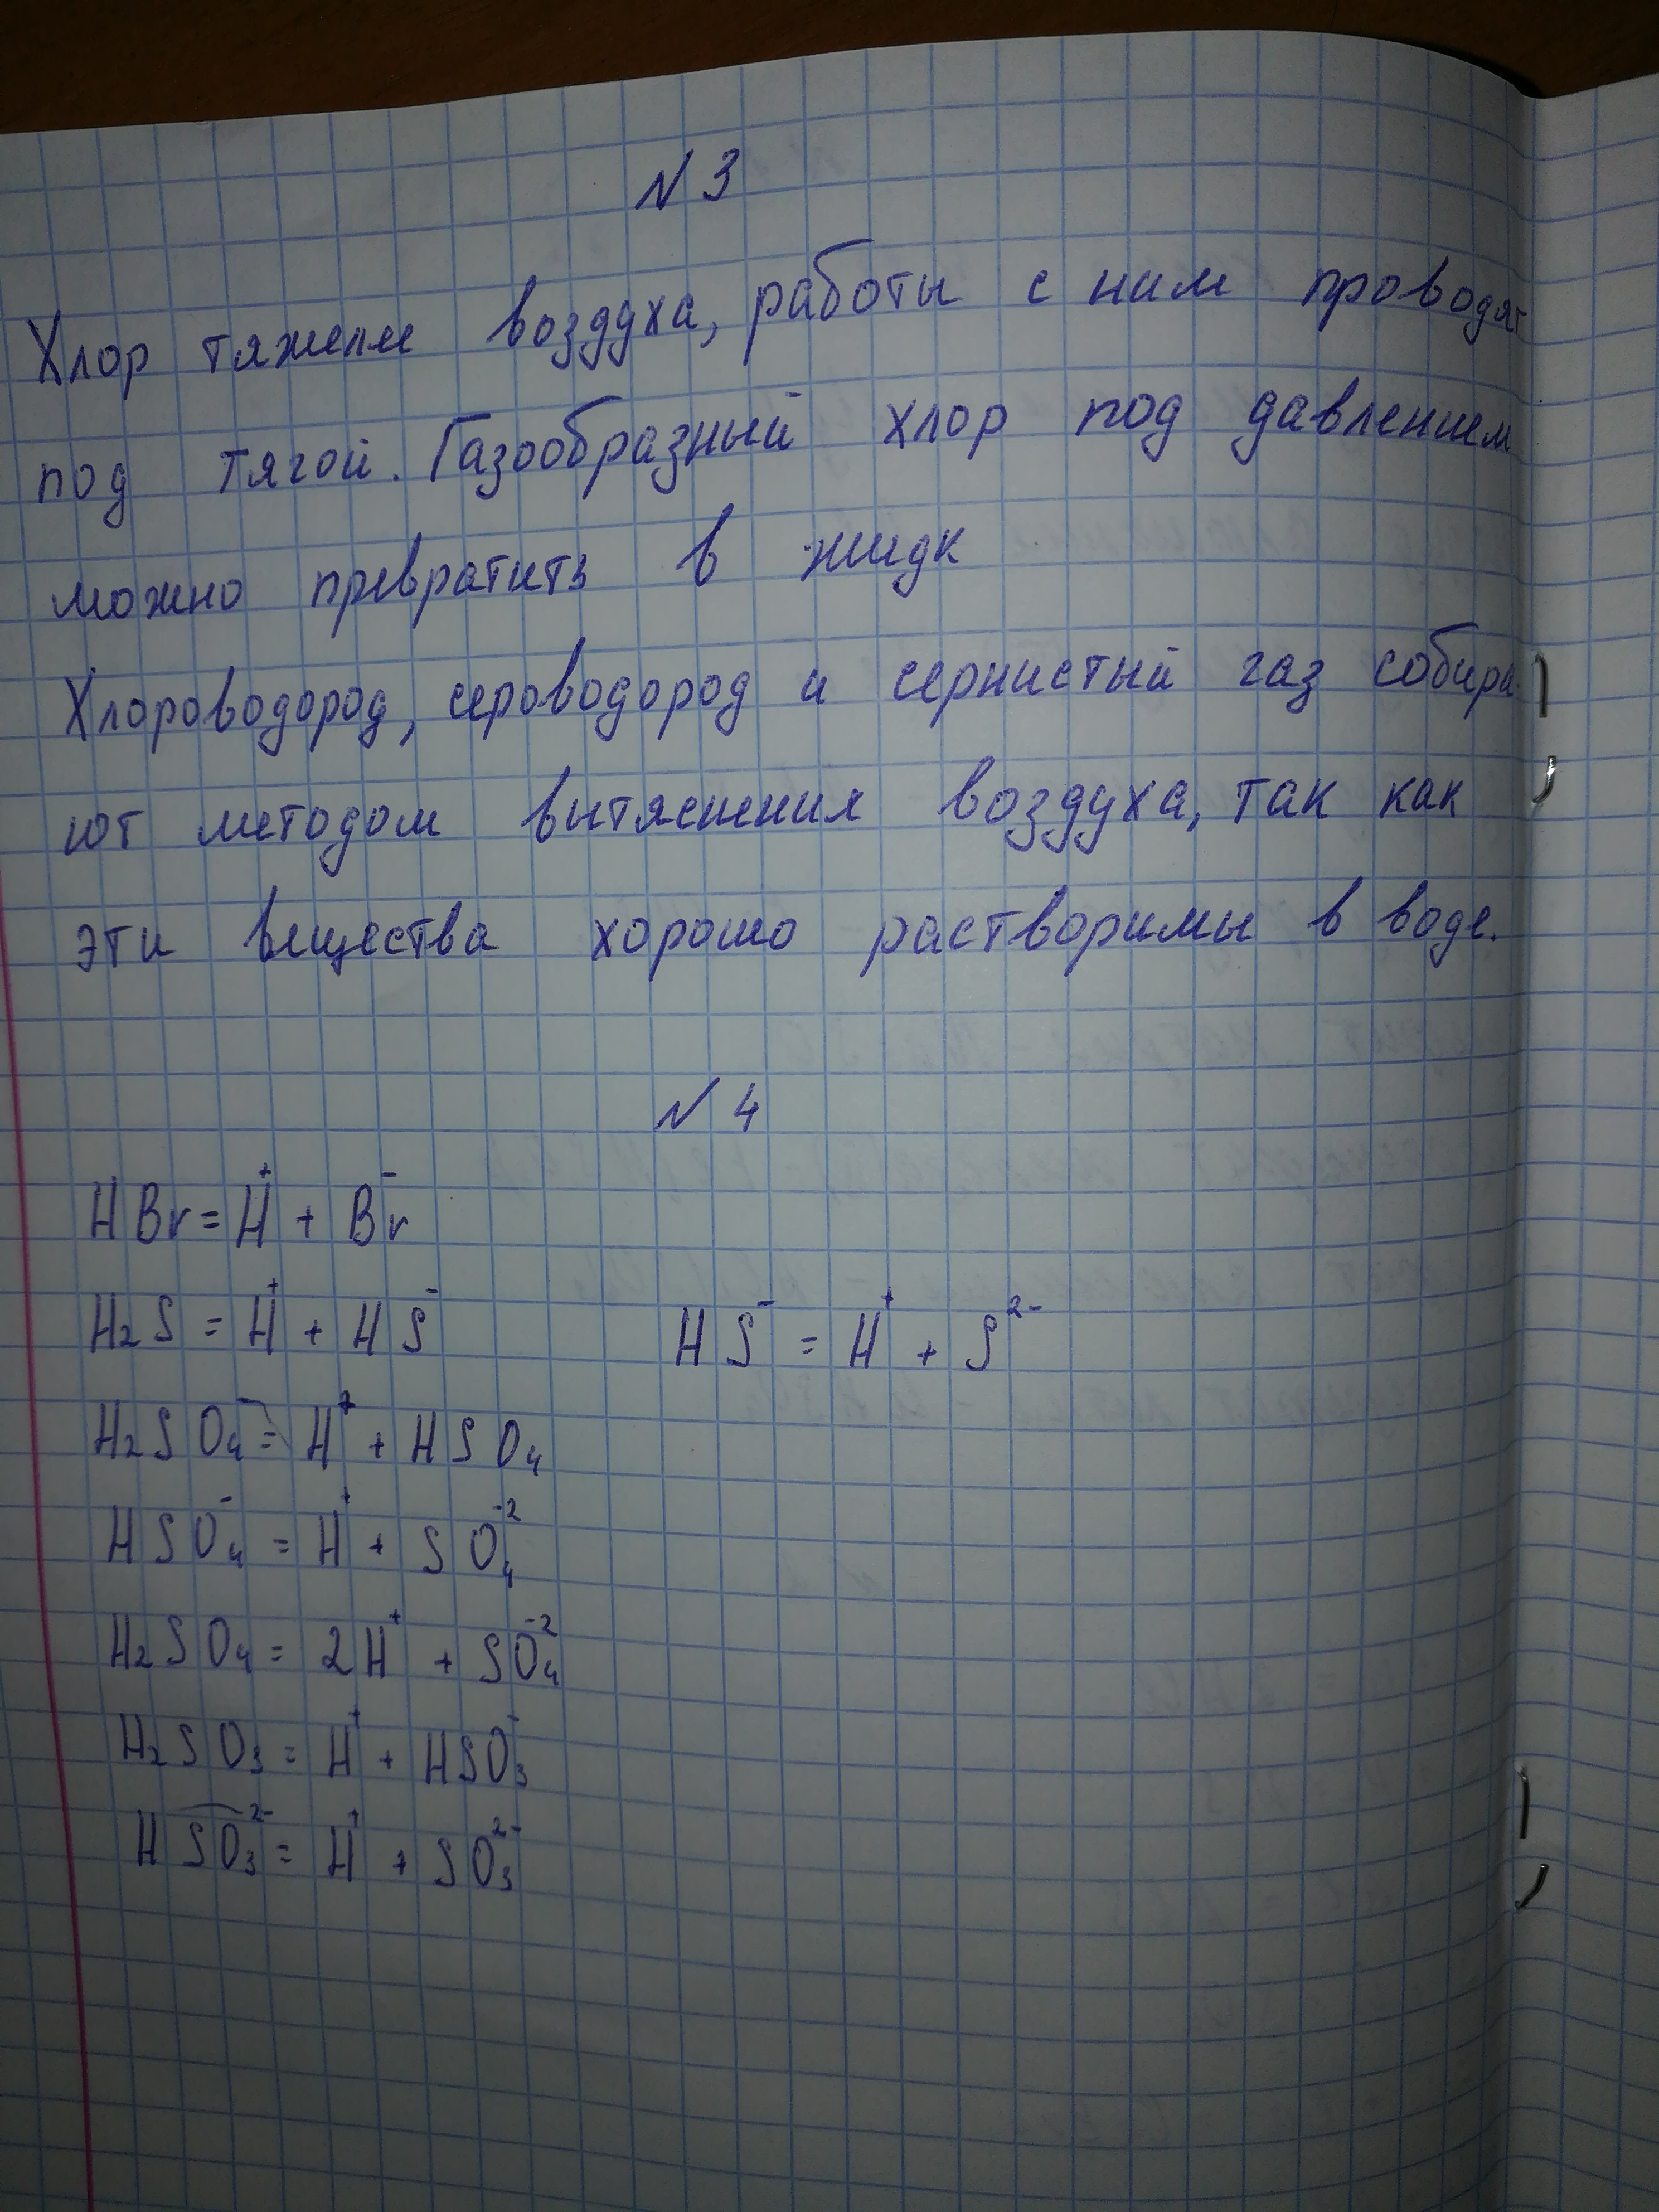 № 3
Хлор тяжелее воздуха, работы с ним проводят
под тягой. Газообразный хлор под давлением
можно превратить в жидк
Хлороводород, сероводород и сернистый газ собира-
ют методом вытяснения воздуха, так как
эти вещества хорошо растворимы в воде.
№ 4
HBr = H⁺ + Br⁻
H₂S = H⁺ + HS⁻ HS⁻ = H⁺ + S²⁻
H₂SO₄ = H⁺ + HSO₄
HSO₄⁻ = H⁺ + SO₄⁻²
H₂SO₄ = 2H⁺ + SO₄⁻²
H₂SO₃ = H⁺ + HSO₃⁻
HSO₃²⁻ = H⁺ + SO₃²⁻